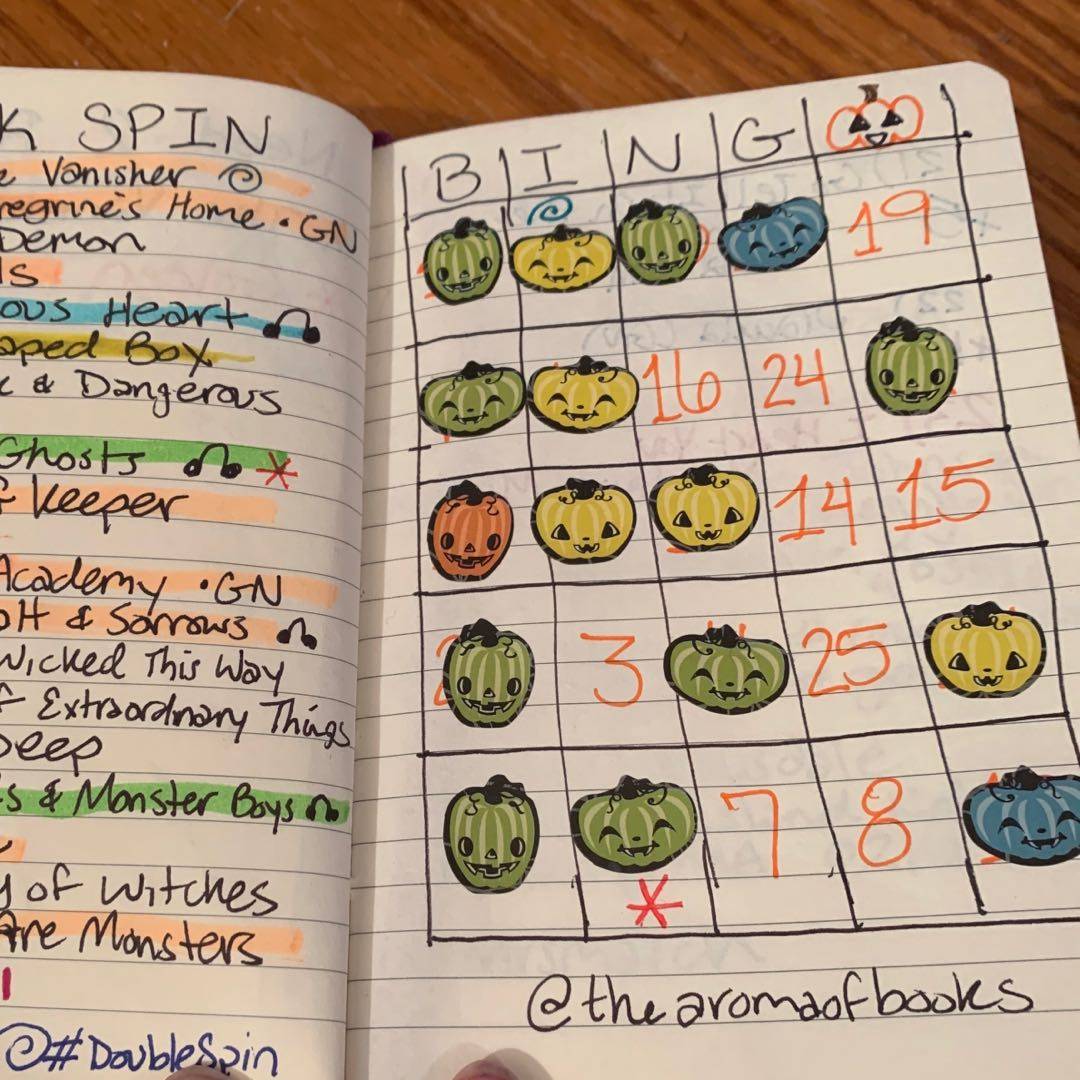 SPIN
Vanisher
Home • GN
Demon
Heart
Box
& Dangerous
Ghosts *
Keeper
Academy • GN
& Sorrows
Wicked This Way
Extraordinary Things
Deep
& Monster Boys
of Witches
Are Monsters
@#DoubleSpin
B I N G
19
16 24
14 15
3 25
7 8
*
@thearomaofbooks